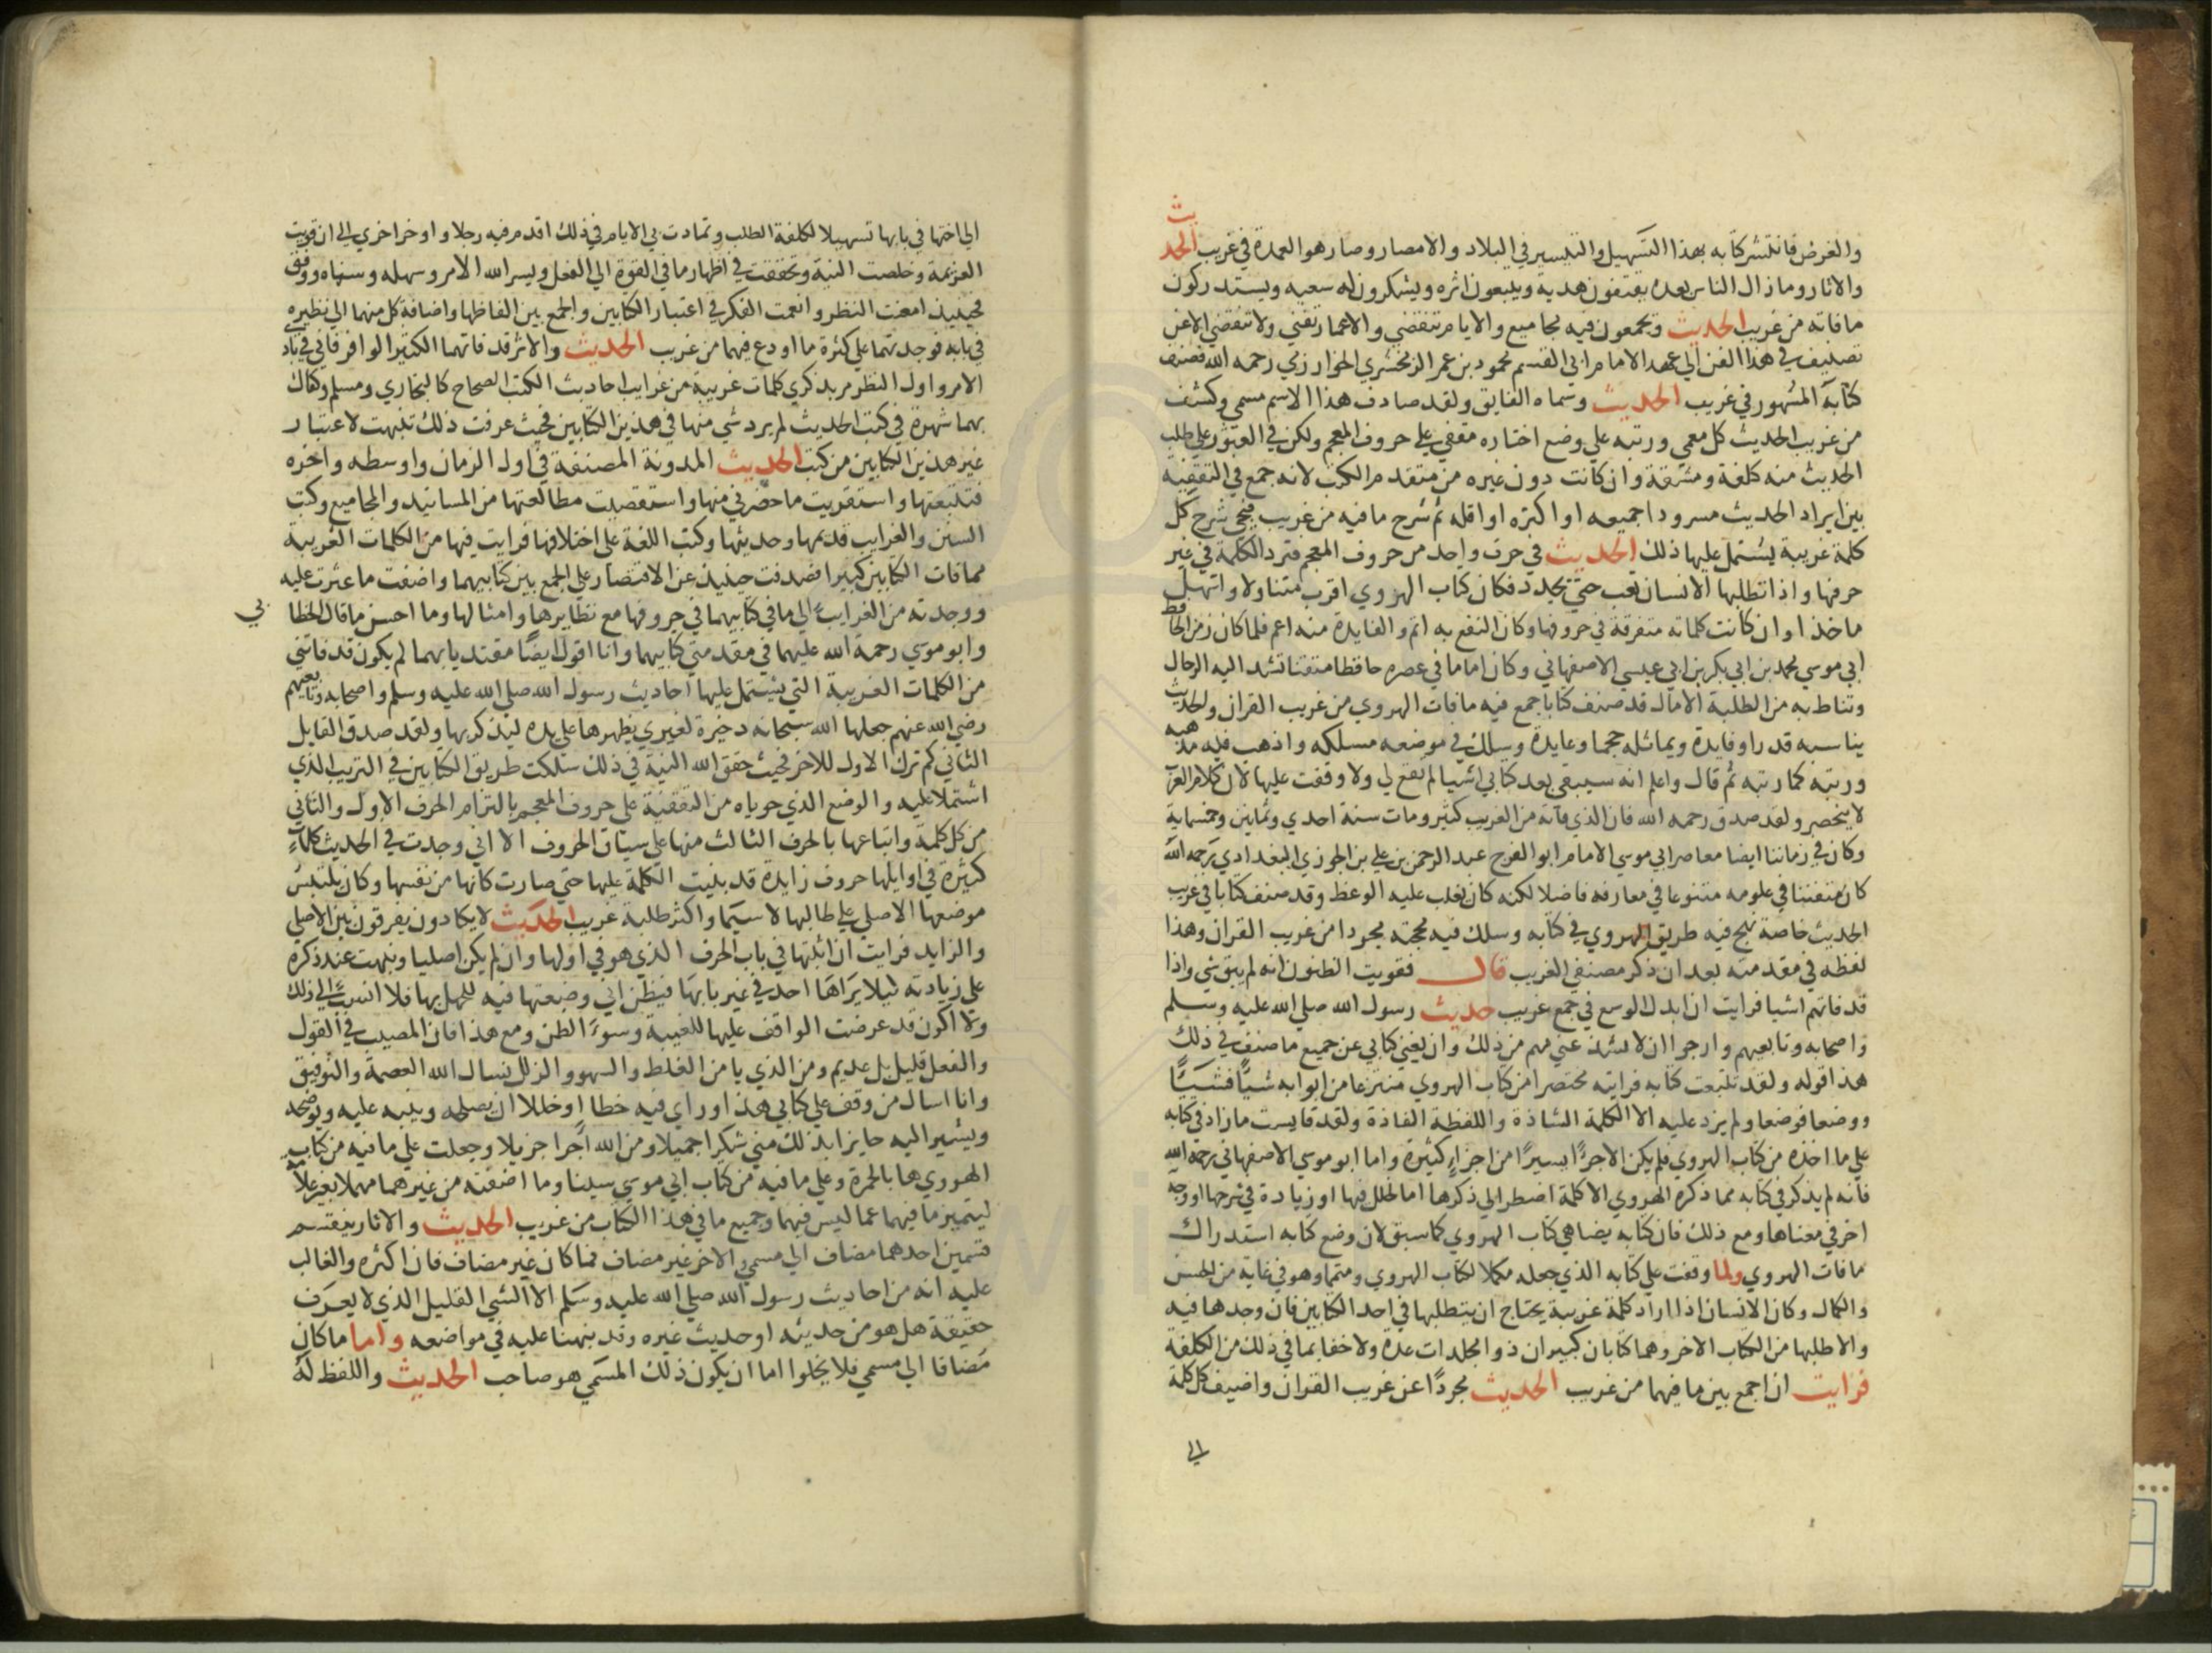 والغرض فانتشر كتابه بهذا التسهيل والتيسير في البلاد والامصار وصار هو العمدة في غريب الحديث
والاثار وما زال الناس بعده يقتفون هديه ويتبعون اثره ويشكرون له سعيه ويستدركون
ما فاته من غريب الحديث ويجمعون فيه مجاميع والايام تنقضي والاعمار تفني ولا تنقضي الا عن
تصنيف في هذا الفن الي عهد الامام ابي القسم محمود بن عمر الزمخشري الخوارزمي رحمه الله فصنف
كتابه المشهور في غريب الحديث وسماه الفايق ولقد صادف هذا الاسم مسمي وكشف
من غريب الحديث كل معمي ورتبه علي وضع اختاره مقفي علي حروف المعجم ولكن في العثور علي طلب
الحديث منه كلفة ومشقة وان كانت دون غيره من متقدم الكتب لانه جمع في التقفية
بين ايراد الحديث مسرودا جميعه او اكثره او اقله ثم شرح ما فيه من غريب فيجي شرح كل
كلمة غريبة يشتمل عليها ذلك الحديث في حرف واحد من حروف المعجم فترد الكلمة في غير
حرفها واذا تطلبها الانسان تعب حتي يجدد فكان كتاب الهروي اقرب متناولا واسهل
ماخذا وان كانت كلماته متفرقة في حروفها وكان النفع به اتم والفايدة منه اعم فلما كان زمن الحافظ
ابي موسي محمد بن ابي بكر بن ابي عيسي الاصفهاني وكان اماما في عصره حافظا متقنا تشد اليه الرحال
وتناط به من الطلبة الامال قد صنف كتابا جمع فيه ما فات الهروي من غريب القران والحديث
يناسبه قدرا وفايدة ويماثله حجما وعايدة وسلك في موضعه مسلكه واذهب فيه مذهبه
ورتبه كما رتبه ثم قال واعلم انه سيبقي بعد كتابي اشيا لم تقع لي ولا وقفت عليها لان كلام العرب
لا ينحصر ولقد صدق رحمه الله فان الذي فاته من الغريب كثير ومات سنة احدي وثمانين وخمسماية
وكان في زماننا ايضا معاصر ابي موسي الامام ابو الفرج عبد الرحمن بن علي بن الجوزي البغدادي رحمه الله
كان متفننا في علومه متنوعا في معارفه فاضلا لكنه كان يغلب عليه الوعظ وقد صنف كتابا في غريب
الحديث خاصة نهج فيه طريق الهروي في كتابه وسلك فيه محجته مجردا من غريب القران وهذا
لفظه في مقدمته بعد ان ذكر مصنفي الغريب قال فقويت الظنون انه لم يبق شي واذا
قد فاتهم اشيا فرايت ان ابذل الوسع في جمع غريب حديث رسول الله صلي الله عليه وسلم
واصحابه وتابعيهم وارجوا ان لا يشذ عني مهم من ذلك وان يغني كتابي عن جميع ما صنف في ذلك
هذا قوله ولقد تتبعت كتابه فرايته مختصرا من كتاب الهروي منتزعا من ابوابه شيئا فشيئا
ووضعا فوضعا ولم يزد عليه الا الكلمة الشاذة واللفظة الفاذة ولقد قايست ما زاد في كتابه
علي ما اخذه من كتاب الهروي فلم يكن الا جزءا يسيرا من اجزاء كثيرة واما ابو موسي الاصفهاني رحمه الله
فانه لم يذكر في كتابه مما ذكره الهروي الا كلمة اضطر الي ذكرها اما لخلل فيها او زيادة في شرحها او وجه
اخر في معناها ومع ذلك فان كتابه يضاهي كتاب الهروي كما سبق لان وضع كتابه استدراك
ما فات الهروي ولما وقفت علي كتابه الذي جعله مكملا لكتاب الهروي ومتمما وهو في غاية من الحسن
والكمال وكان الانسان اذا اراد كلمة غريبة يحتاج ان يتطلبها في احد الكتابين فان وجدها فيه
والا طلبها من الكتاب الاخر وهما كتابان كبيران ذوا مجلدات عدة ولا خفا بما في ذلك من الكلفة
فرايت ان اجمع بين ما فيهما من غريب الحديث مجردا عن غريب القران واضيف كل كلمة
الي
الي اختها في بابها تسهيلا لكلفة الطلب وتمادت بي الايام في ذلك اقدم فيه رجلا واوخر اخري الي ان قويت
العزيمة وخلصت النية وتحققت في اظهار ما في القوة الي الفعل ويسر الله الامر وسهله وسناه ووفق
فحينيذ امعنت النظر وانعمت الفكر في اعتبار الكتابين والجمع بين الفاظها واضافة كل منهما الي نظيره
في بابه فوجدتهما علي كثرة ما اودع فيهما من غريب الحديث والاثر قد فاتهما الكثير الوافر فاني في بادي
الامر واول النظر مر بذكري كلمات غريبة من غرايب احاديث الكتب الصحاح كالبخاري ومسلم وكفاك
بهما شهرة في كتب الحديث لم يرد شي منها في هذين الكتابين فحيث عرفت ذلك تنبهت لاعتبار
غير هذين الكتابين من كتب الحديث المدونة المصنفة في اول الزمان واوسطه واخره
فتتبعتها واستقريت ما حضرني منها واستقصيت مطالعتها من المسانيد والمجاميع وكتب
السنن والغرايب قديمها وحديثها وكتب اللغة علي اختلافها فرايت فيها من الكلمات الغريبة
مما فات الكتابين كثيرا فصدفت حينيذ عن الاقتصار علي الجمع بين كتابيهما واضفت ما عثرت عليه
ووجدته من الغرايب الي ما في كتابيهما في حروفها مع نظايرها وامثالها وما احسن ما قال الخطا بي
وابو موسي رحمة الله عليهما في مقدمتي كتابيهما وانا اقول ايضا مقتديا بهما لم يكون قد فاتني
من الكلمات الغريبة التي يشتمل عليها احاديث رسول الله صلي الله عليه وسلم واصحابه وتابعيهم
رضي الله عنهم جعلها الله سبحانه ذخيرة لغيري يظهرها علي يده ليذكر بها ولقد صدق القايل
الثاني كم ترك الاول للاخر فحيث حقق الله النية في ذلك سلكت طريق الكتابين في الترتيب الذي
اشتملا عليه والوضع الذي حوياه من التقفية علي حروف المعجم بالتزام الحرف الاول والثاني
من كل كلمة واتباعها بالحرف الثالث منها علي سياق الحروف الا اني وجدت في الحديث كلمات
كثيرة في اوايلها حروف زايدة قد بنيت الكلمة عليها حتي صارت كانها من نفسها وكان يلتبس
موضعها الاصلي علي طالبها لا سيما واكثر طلبة غريب الحديث لا يكادون يفرقون بين الاصلي
والزايد فرايت ان اثبتها في باب الحرف الذي هو في اولها وان لم يكن اصليا ونبهت عند ذكره
علي زيادته ليلا يراها احد في غير بابها فيظن اني وضعتها فيه للجهل بها فلا انسب الي ذلك
ولا اكون قد عرضت الواقف عليها للغيبة وسوء الظن ومع هذا فان المصيب في القول
والفعل قليل بل عديم ومن الذي يامن الغلط والسهو والزلل نسال الله العصمة والتوفيق
وانا اسال من وقف علي كتابي هذا وراي فيه خطا او خللا ان يصلحه وينبه عليه ويوضحه
ويشير اليه حايزا بذلك مني شكرا جميلا ومن الله اجرا جزيلا وجعلت علي ما فيه من كتاب
الهروي ها بالحمرة وعلي ما فيه من كتاب ابي موسي سينا وما اضفته من غيرهما مهملا بغير علامة
ليتميز ما فيهما عما ليس فيهما وجميع ما في هذا الكتاب من غريب الحديث والاثار ينقسم
قسمين احدهما مضاف الي مسمي والاخر غير مضاف فما كان غير مضاف فان اكثره والغالب
عليه انه من احاديث رسول الله صلي الله عليه وسلم الا الشي القليل الذي لا يعرف
حقيقة هل هو من حديثه او حديث غيره وقد نبهنا عليه في مواضعه واما ما كان
مضافا الي مسمي فلا يخلوا اما ان يكون ذلك المسمي هو صاحب الحديث واللفظ له